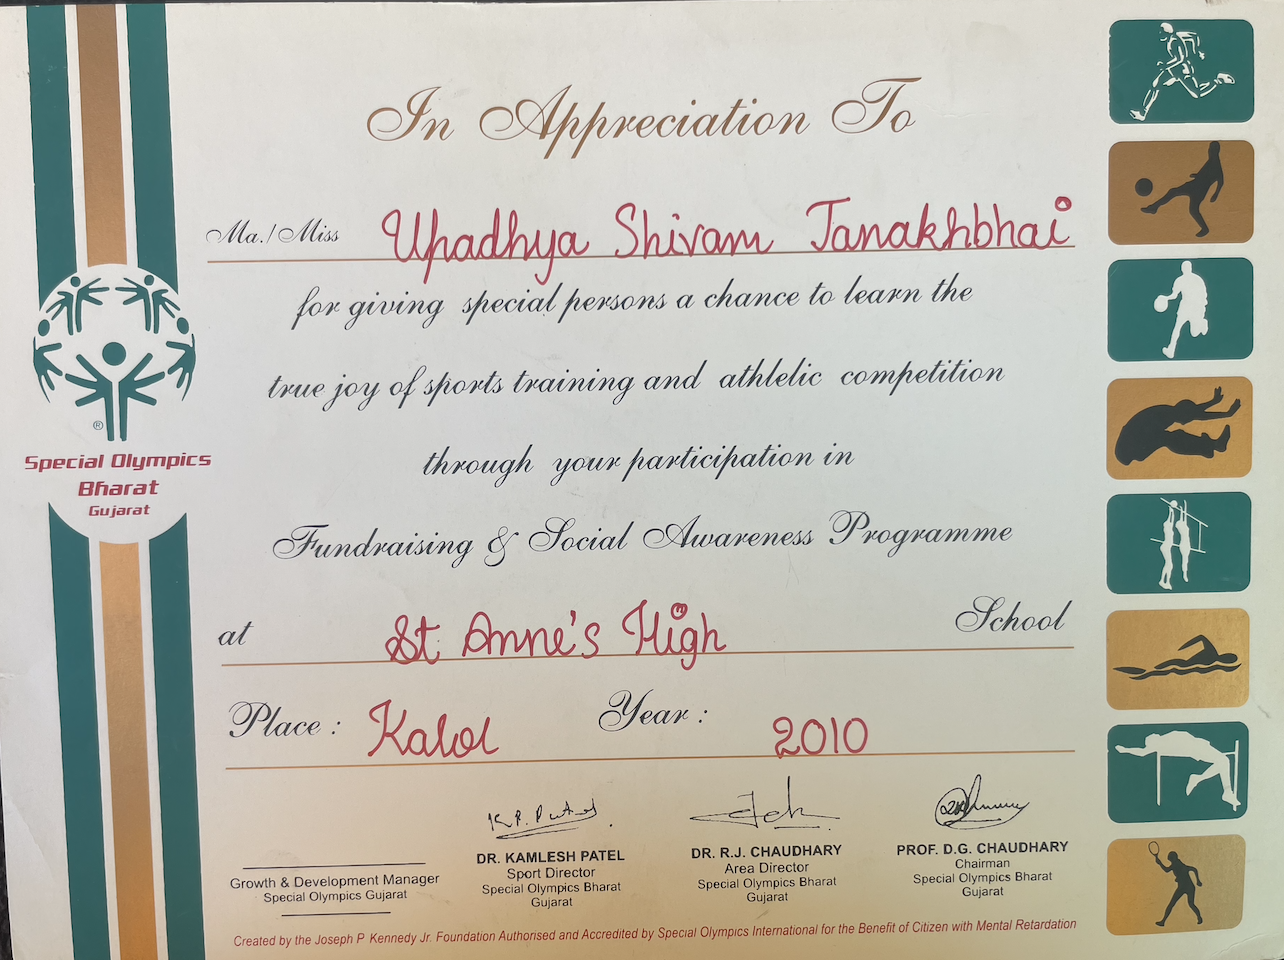 In Appreciation To
Ma./Miss Upadhya Shivam Janakhbhai
for giving special persons a chance to learn the
true joy of sports training and athlelic competition
through your participation in
Fundraising & Social Awareness Programme
at St Anne's High School
Place : Kalol Year : 2010
®
Special Olympics
Bharat
Gujarat
Growth & Development Manager
Special Olympics Gujarat
K.P. Patel
DR. KAMLESH PATEL
Sport Director
Special Olympics Bharat
Gujarat
DR. R.J. CHAUDHARY
Area Director
Special Olympics Bharat
Gujarat
PROF. D.G. CHAUDHARY
Chairman
Special Olympics Bharat
Gujarat
Created by the Joseph P. Kennedy Jr. Foundation Authorised and Accredited by Special Olympics International for the Benefit of Citizen with Mental Retardation